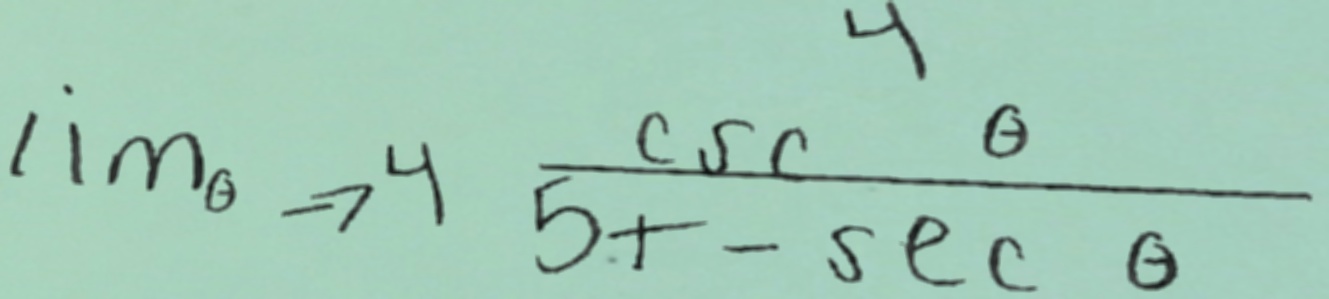 \lim_{\theta \to 4} \frac{\csc^4 \theta}{5 + - \sec \theta}